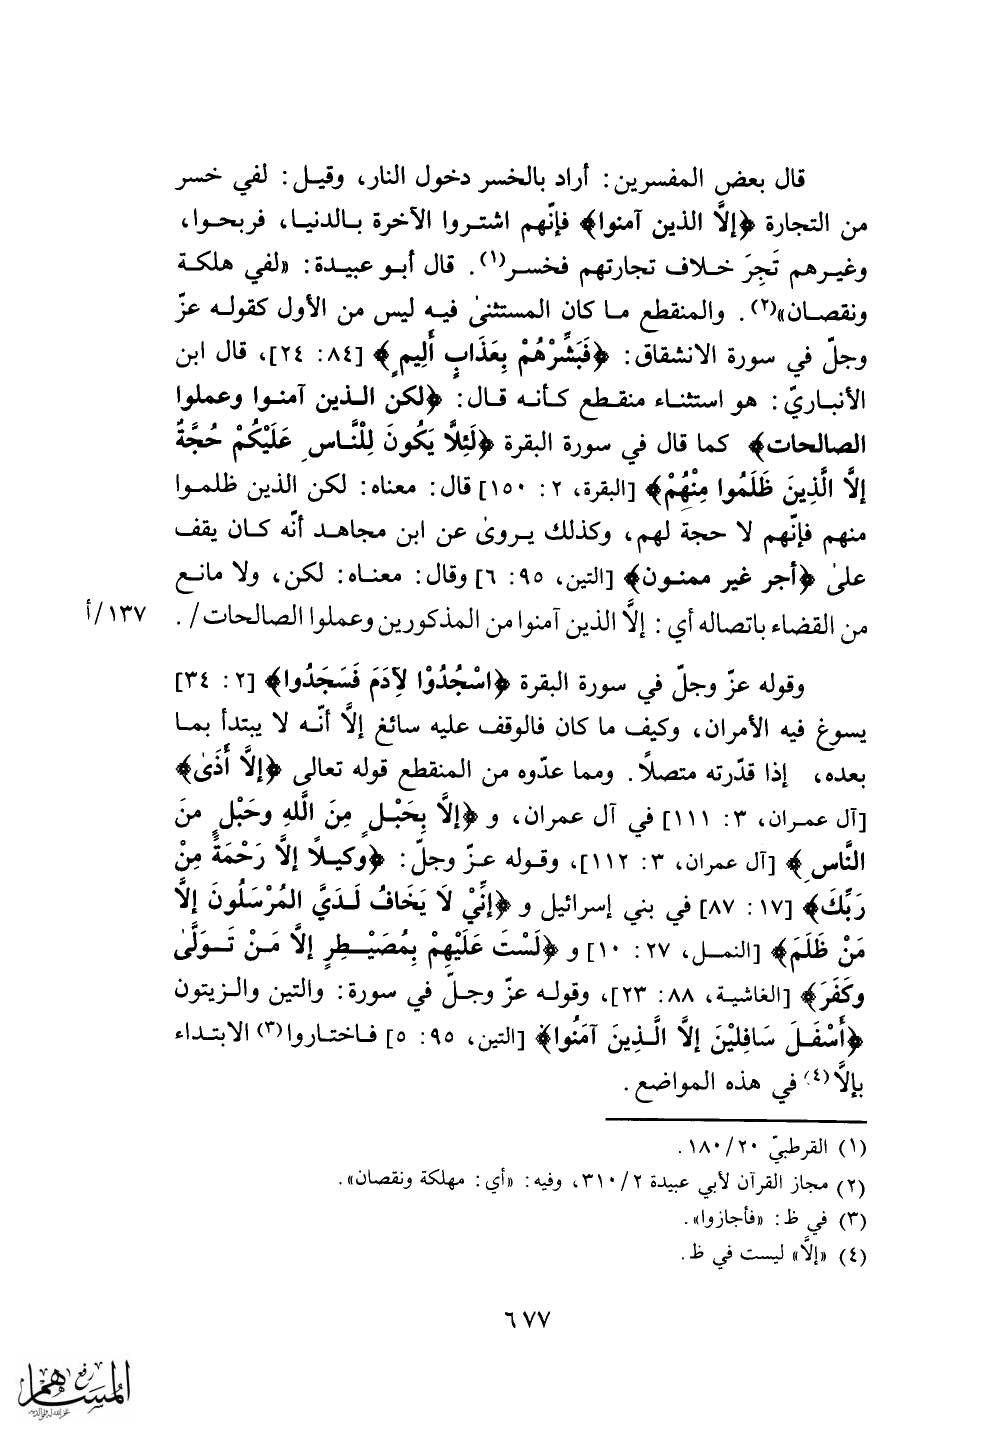 قال بعض المفسرين: أراد بالخسر دخول النار، وقيل: لفي خسر
من التجارة ﴿إلَّا الذين آمنوا﴾ فإنّهم اشتروا الآخرة بالدنيا، فربحوا،
وغيرهم تَجِرَ خلاف تجارتهم فخسر(١). قال أبو عبيدة: «لفي هلكة
ونقصان»(٢). والمنقطع ما كان المستثنىٰ فيه ليس من الأول كقوله عزّ
وجلّ في سورة الانشقاق: ﴿فَبَشِّرْهُمْ بِعَذَابٍ أَلِيمٍ﴾ [٨٤: ٢٤]، قال ابن
الأنباريّ: هو استثناء منقطع كأنه قال: ﴿لكن الذين آمنوا وعملوا
الصالحات﴾ كما قال في سورة البقرة ﴿لَئِلَّا يَكُونَ لِلْنَّاسِ عَلَيْكُمْ حُجَّةٌ
إلَّا الَّذِينَ ظَلَمُوا مِنْهُمْ﴾ [البقرة، ٢: ١٥٠] قال: معناه: لكن الذين ظلموا
منهم فإنّهم لا حجة لهم، وكذلك يروىٰ عن ابن مجاهد أنّه كان يقف
علىٰ ﴿أجر غير ممنون﴾ [التين، ٩٥: ٦] وقال: معناه: لكن، ولا مانع
من القضاء باتصاله أي: إلَّا الذين آمنوا من المذكورين وعملوا الصالحات/. ١٣٧/أ
وقوله عزّ وجلّ في سورة البقرة ﴿اسْجُدُوْا لِآدَمَ فَسَجَدُوا﴾ [٢: ٣٤]
يسوغ فيه الأمران، وكيف ما كان فالوقف عليه سائغ إلَّا أنّه لا يبتدأ بما
بعده، إذا قدّرته متصلًا. ومما عدّوه من المنقطع قوله تعالى ﴿إلَّا أَذَىٰ﴾
[آل عمران، ٣: ١١١] في آل عمران، و ﴿إلَّا بِحَبْلٍ مِنَ اللَّهِ وحَبْلٍ منَ
النَّاسِ﴾ [آل عمران، ٣: ١١٢]، وقوله عزّ وجلّ: ﴿وكيلًا إلَّا رَحْمَةً مِنْ
رَبِّكَ﴾ [١٧: ٨٧] في بني إسرائيل و ﴿إنِّيْ لَا يَخَافُ لَدَيَّ المُرْسَلُونَ إلَّا
مَنْ ظَلَمَ﴾ [النمل، ٢٧: ١٠] و ﴿لَسْتَ عَلَيْهِمْ بِمُصَيْطِرٍ إلَّا مَنْ تَوَلَّىٰ
وكَفَرَ﴾ [الغاشية، ٨٨: ٢٣]، وقوله عزّ وجلّ في سورة: والتين والزيتون
﴿أَسْفَلَ سَافِلِيْنَ إلَّا الَّذِينَ آمَنُوا﴾ [التين، ٩٥: ٥] فاختاروا(٣) الابتداء
بإلَّا(٤) في هذه المواضع.
(١) القرطبيّ ١٨٠/٢٠.
(٢) مجاز القرآن لأبي عبيدة ٣١٠/٢، وفيه: «أي: مهلكة ونقصان».
(٣) في ظ: «فأجازوا».
(٤) «إلَّا» ليست في ظ.
٦٧٧
رفع
المساهم